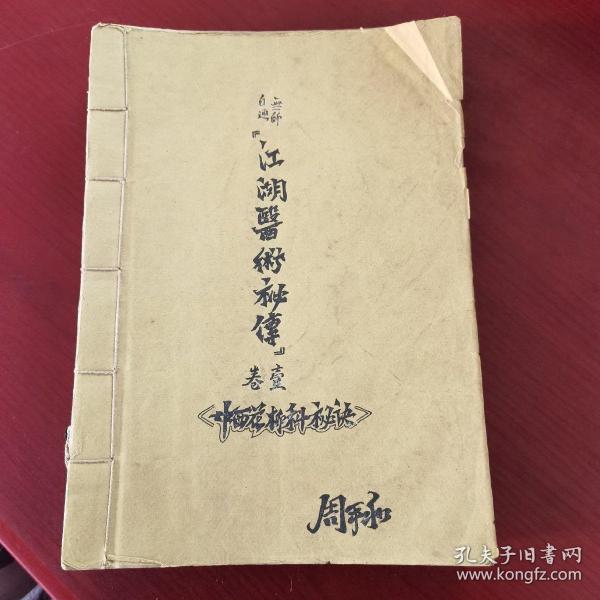 無師
自通
『江湖醫術祕傳』
卷壹
<中西花柳科秘訣>
周和
孔夫子旧书网
www.kongfz.com